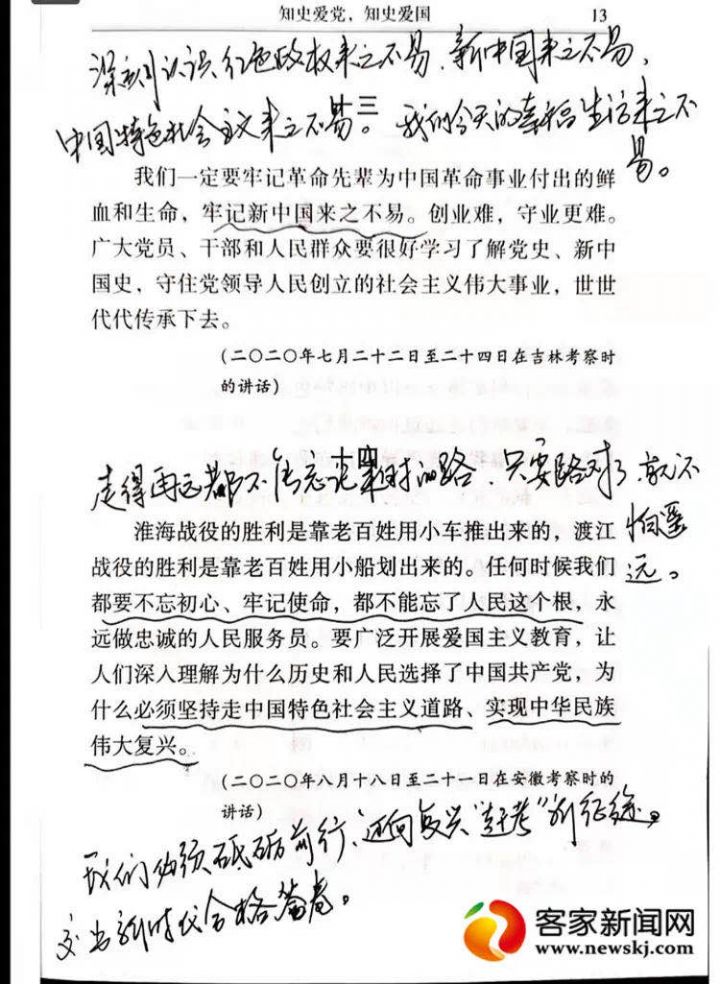 知史爱党，知史爱国 13
深刻认识红色政权来之不易，新中国来之不易，
中国特色社会主义来之不易。我们今天的幸福生活来之不
易。
三
我们一定要牢记革命先辈为中国革命事业付出的鲜
血和生命，牢记新中国来之不易。创业难，守业更难。
广大党员、干部和人民群众要很好学习了解党史、新中
国史，守住党领导人民创立的社会主义伟大事业，世世
代代传承下去。
（二〇二〇年七月二十二日至二十四日在吉林考察时
的讲话）
十四
走得再远都不能忘记来时的路，只要路对了，就不
怕遥
远。
淮海战役的胜利是靠老百姓用小车推出来的，渡江
战役的胜利是靠老百姓用小船划出来的。任何时候我们
都要不忘初心、牢记使命，都不能忘了人民这个根，永
远做忠诚的人民服务员。要广泛开展爱国主义教育，让
人们深入理解为什么历史和人民选择了中国共产党，为
什么必须坚持走中国特色社会主义道路、实现中华民族
伟大复兴。
（二〇二〇年八月十八日至二十一日在安徽考察时的
讲话）
我们必须砥砺前行，迈向复兴“赶考”新征途。
交出新时代合格答卷。
客家新闻网
www.newskj.com